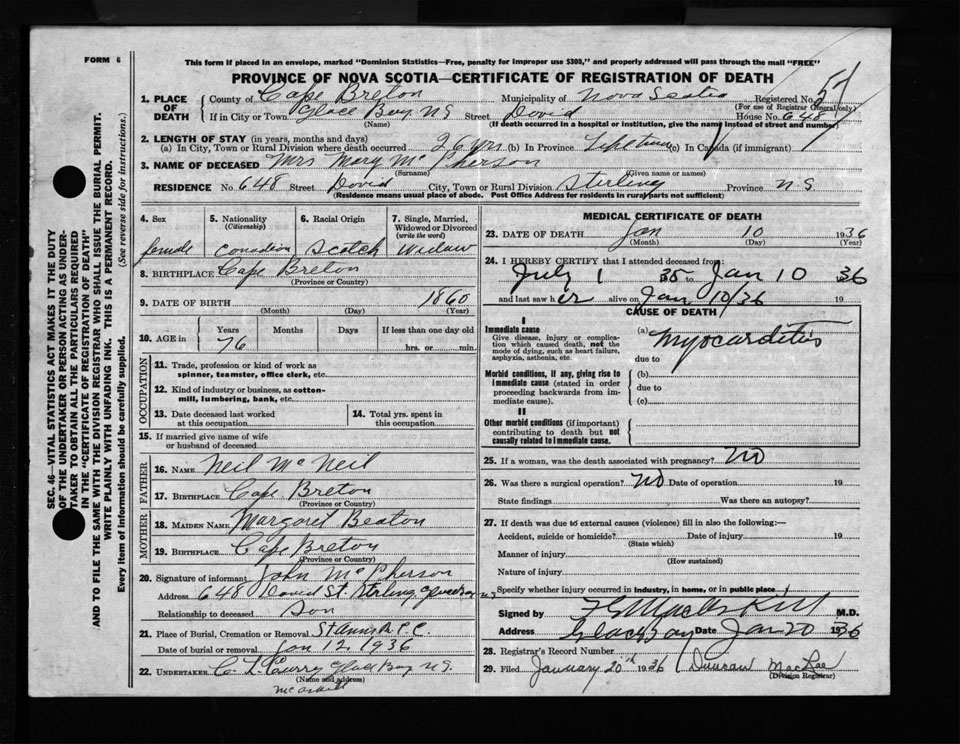 FORM 6
This form if placed in an envelope, marked "Dominion Statistics—Free, penalty for improper use $300," and properly addressed will pass through the mail "FREE"
PROVINCE OF NOVA SCOTIA—CERTIFICATE OF REGISTRATION OF DEATH
1. PLACE OF DEATH
County of Cape Breton Municipality of Nova Scotia Registered No. 57
(For use of Registrar General only)
If in City or Town Glace Bay N S Street David House No. 648
(Name) (If death occurred in a hospital or institution, give the name instead of street and number)
2. LENGTH OF STAY (in years, months and days)
(a) In City, Town or Rural Division where death occurred 26 yrs (b) In Province Life time (c) In Canada (if immigrant)
3. NAME OF DECEASED Mrs Mary McPherson
(Surname) (Given name or names)
RESIDENCE No 648 Street David City, Town or Rural Division Sterling Province N S
(Residence means usual place of abode. Post Office Address for residents in rural parts not sufficient)
4. Sex female
5. Nationality (Citizenship) Canadian
6. Racial Origin Scotch
7. Single, Married, Widowed or Divorced (write the word) Widow
8. BIRTHPLACE Cape Breton
(Province or Country)
9. DATE OF BIRTH 1860
(Month) (Day) (Year)
10. AGE in Years Months Days If less than one day old
76 hrs. or min.
OCCUPATION
11. Trade, profession or kind of work as spinner, teamster, office clerk, etc.
12. Kind of industry or business, as cotton-mill, lumbering, bank, etc.
13. Date deceased last worked at this occupation
14. Total yrs. spent in this occupation
15. If married give name of wife or husband of deceased
FATHER
16. NAME Neil McNeil
17. BIRTHPLACE Cape Breton
(Province or Country)
MOTHER
18. MAIDEN NAME Margaret Beaton
19. BIRTHPLACE Cape Breton
(Province or Country)
20. Signature of informant John McPherson
Address 648 David St. Sterling Glace Bay N.S
Relationship to deceased Son
21. Place of Burial, Cremation or Removal St Anns R.C.C.
Date of burial or removal Jan 12, 1936
22. UNDERTAKER C. L. Curry Glace Bay N.S.
(Name and address)
MEDICAL CERTIFICATE OF DEATH
23. DATE OF DEATH Jan 10 1936
(Month) (Day) (Year)
24. I HEREBY CERTIFY that I attended deceased from:
July 1 35 to Jan 10 1936
and last saw her alive on Jan 10/36 19
CAUSE OF DEATH
I
Immediate cause
Give disease, injury or complication which caused death, not the mode of dying, such as heart failure, asphyxia, asthenia, etc.
(a) Myocarditis
due to
Morbid conditions, if any, giving rise to immediate cause (stated in order proceeding backwards from immediate cause).
(b)
due to
(c)
II
Other morbid conditions (if important) contributing to death but not causally related to immediate cause.
25. If a woman, was the death associated with pregnancy? No
26. Was there a surgical operation? No Date of operation 19
State findings Was there an autopsy?
27. If death was due to external causes (violence) fill in also the following:—
Accident, suicide or homicide? Date of injury 19
(State which)
Manner of injury
(How sustained)
Nature of injury
Specify whether injury occurred in industry, in home, or in public place
Signed by M.D.
Address Glace Bay Date Jan 20 1936
28. Registrar's Record Number
29. Filed January 20th 1936 Duncan MacRae
(Division Registrar)
SEC. 46—VITAL STATISTICS ACT MAKES IT THE DUTY
OF THE UNDERTAKER OR PERSON ACTING AS UNDER-
TAKER TO OBTAIN ALL THE PARTICULARS REQUIRED
IN THE "CERTIFICATE OF REGISTRATION OF DEATH"
AND TO FILE THE SAME WITH THE DIVISION REGISTRAR WHO SHALL ISSUE THE BURIAL PERMIT.
WRITE PLAINLY WITH UNFADING INK. THIS IS A PERMANENT RECORD.
Every item of information should be carefully supplied. (See reverse side for instructions.)